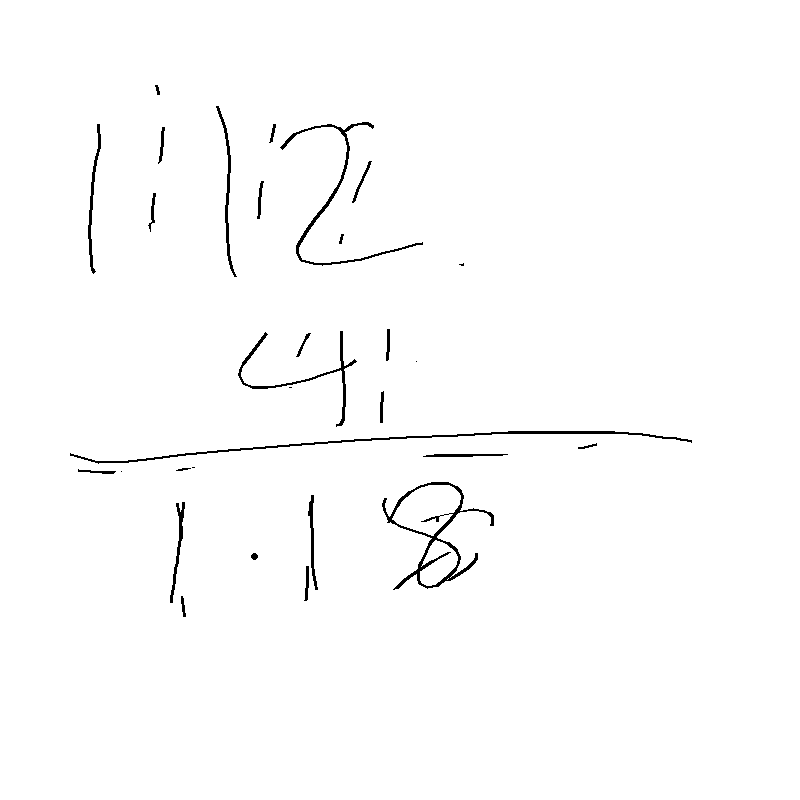 112
4
1.18